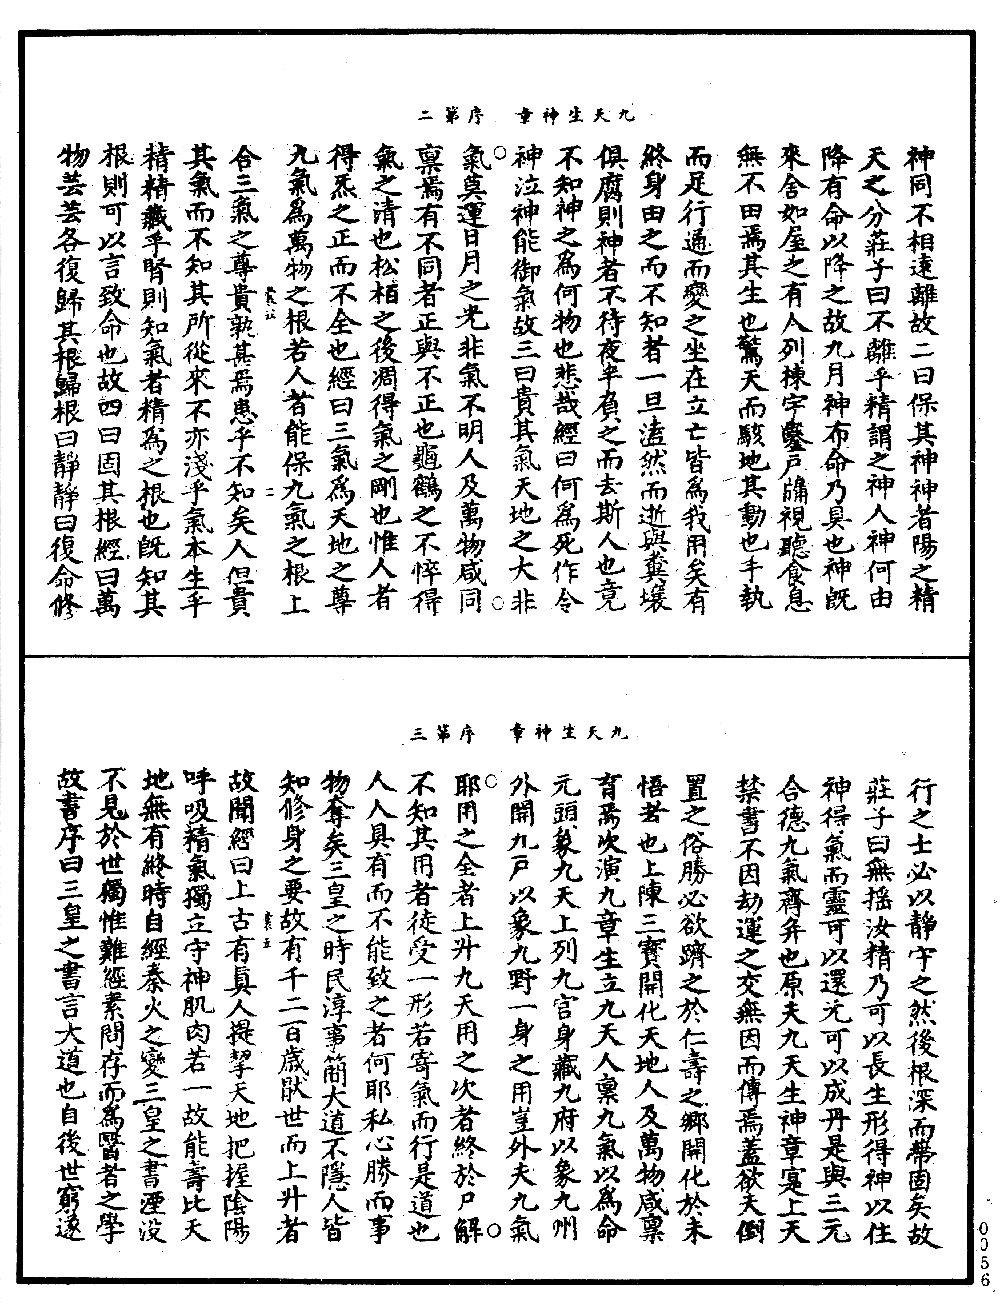 九天生神章　序第二
神同不相遠離故二曰保其神神者陽之精
天之分莊子曰不離乎精謂之神人神何由
降有命以降之故九月神布命乃具也神旣
來舍如屋之有人列棟宇鑿戶牖視聽食息
無不由焉其生也驚天而駭地其動也手執
而足行通而變之坐在立亡皆爲我用矣有
終身由之而不知者一旦溘然而逝與糞壤
俱腐則神者不待夜半負之而去斯人也竟
不知神之爲何物也悲哉經曰何爲死作令
神泣神能御氣故三曰貴其氣天地之大非
氣莫運日月之光非氣不明人及萬物咸同
稟焉有不同者正與不正也龜鶴之不悴得
氣之清也松柏之後凋得氣之剛也惟人者
得炁之正而不全也經曰三氣爲天地之尊
九氣爲萬物之根若人者能保九氣之根上
合三氣之尊貴孰甚焉患乎不知矣人但貴
其氣而不知其所從來不亦淺乎氣本生乎
精精藏乎腎則知氣者精爲之根也旣知其
根則可以言致命也故四曰固其根經曰萬
物芸芸各復歸其根歸根曰靜靜曰復命修
九天生神章　序第三
行之士必以靜守之然後根深而蒂固矣故
莊子曰無搖汝精乃可以長生形得神以住
神得氣而靈可以還元可以成丹是與三元
合德九氣齊并也原夫九天生神章寔上天
禁書不因劫運之交無因而傳焉蓋欲天倒
置之俗勝必欲躋之於仁壽之鄉開化於未
悟者也上陳三寶開化天地人及萬物咸稟
育焉次演九章生立九天人稟九氣以爲命
元頭象九天上列九宮身藏九府以象九州
外開九戶以象九野一身之用豈外夫九氣
耶用之全者上升九天用之次者終於尸解
不知其用者徒受一形若寄氣而行是道也
人人具有而不能致之者何耶私心勝而事
物奪矣三皇之時民淳事簡大道不隱人皆
知修身之要故有千二百歲猒世而上升者
故聞經曰上古有真人提挈天地把握陰陽
呼吸精氣獨立守神肌肉若一故能壽比天
地無有終時自經秦火之變三皇之書湮沒
不見於世獨惟難經素問存而爲醫者之學
故書序曰三皇之書言大道也自後世窮遂
0056